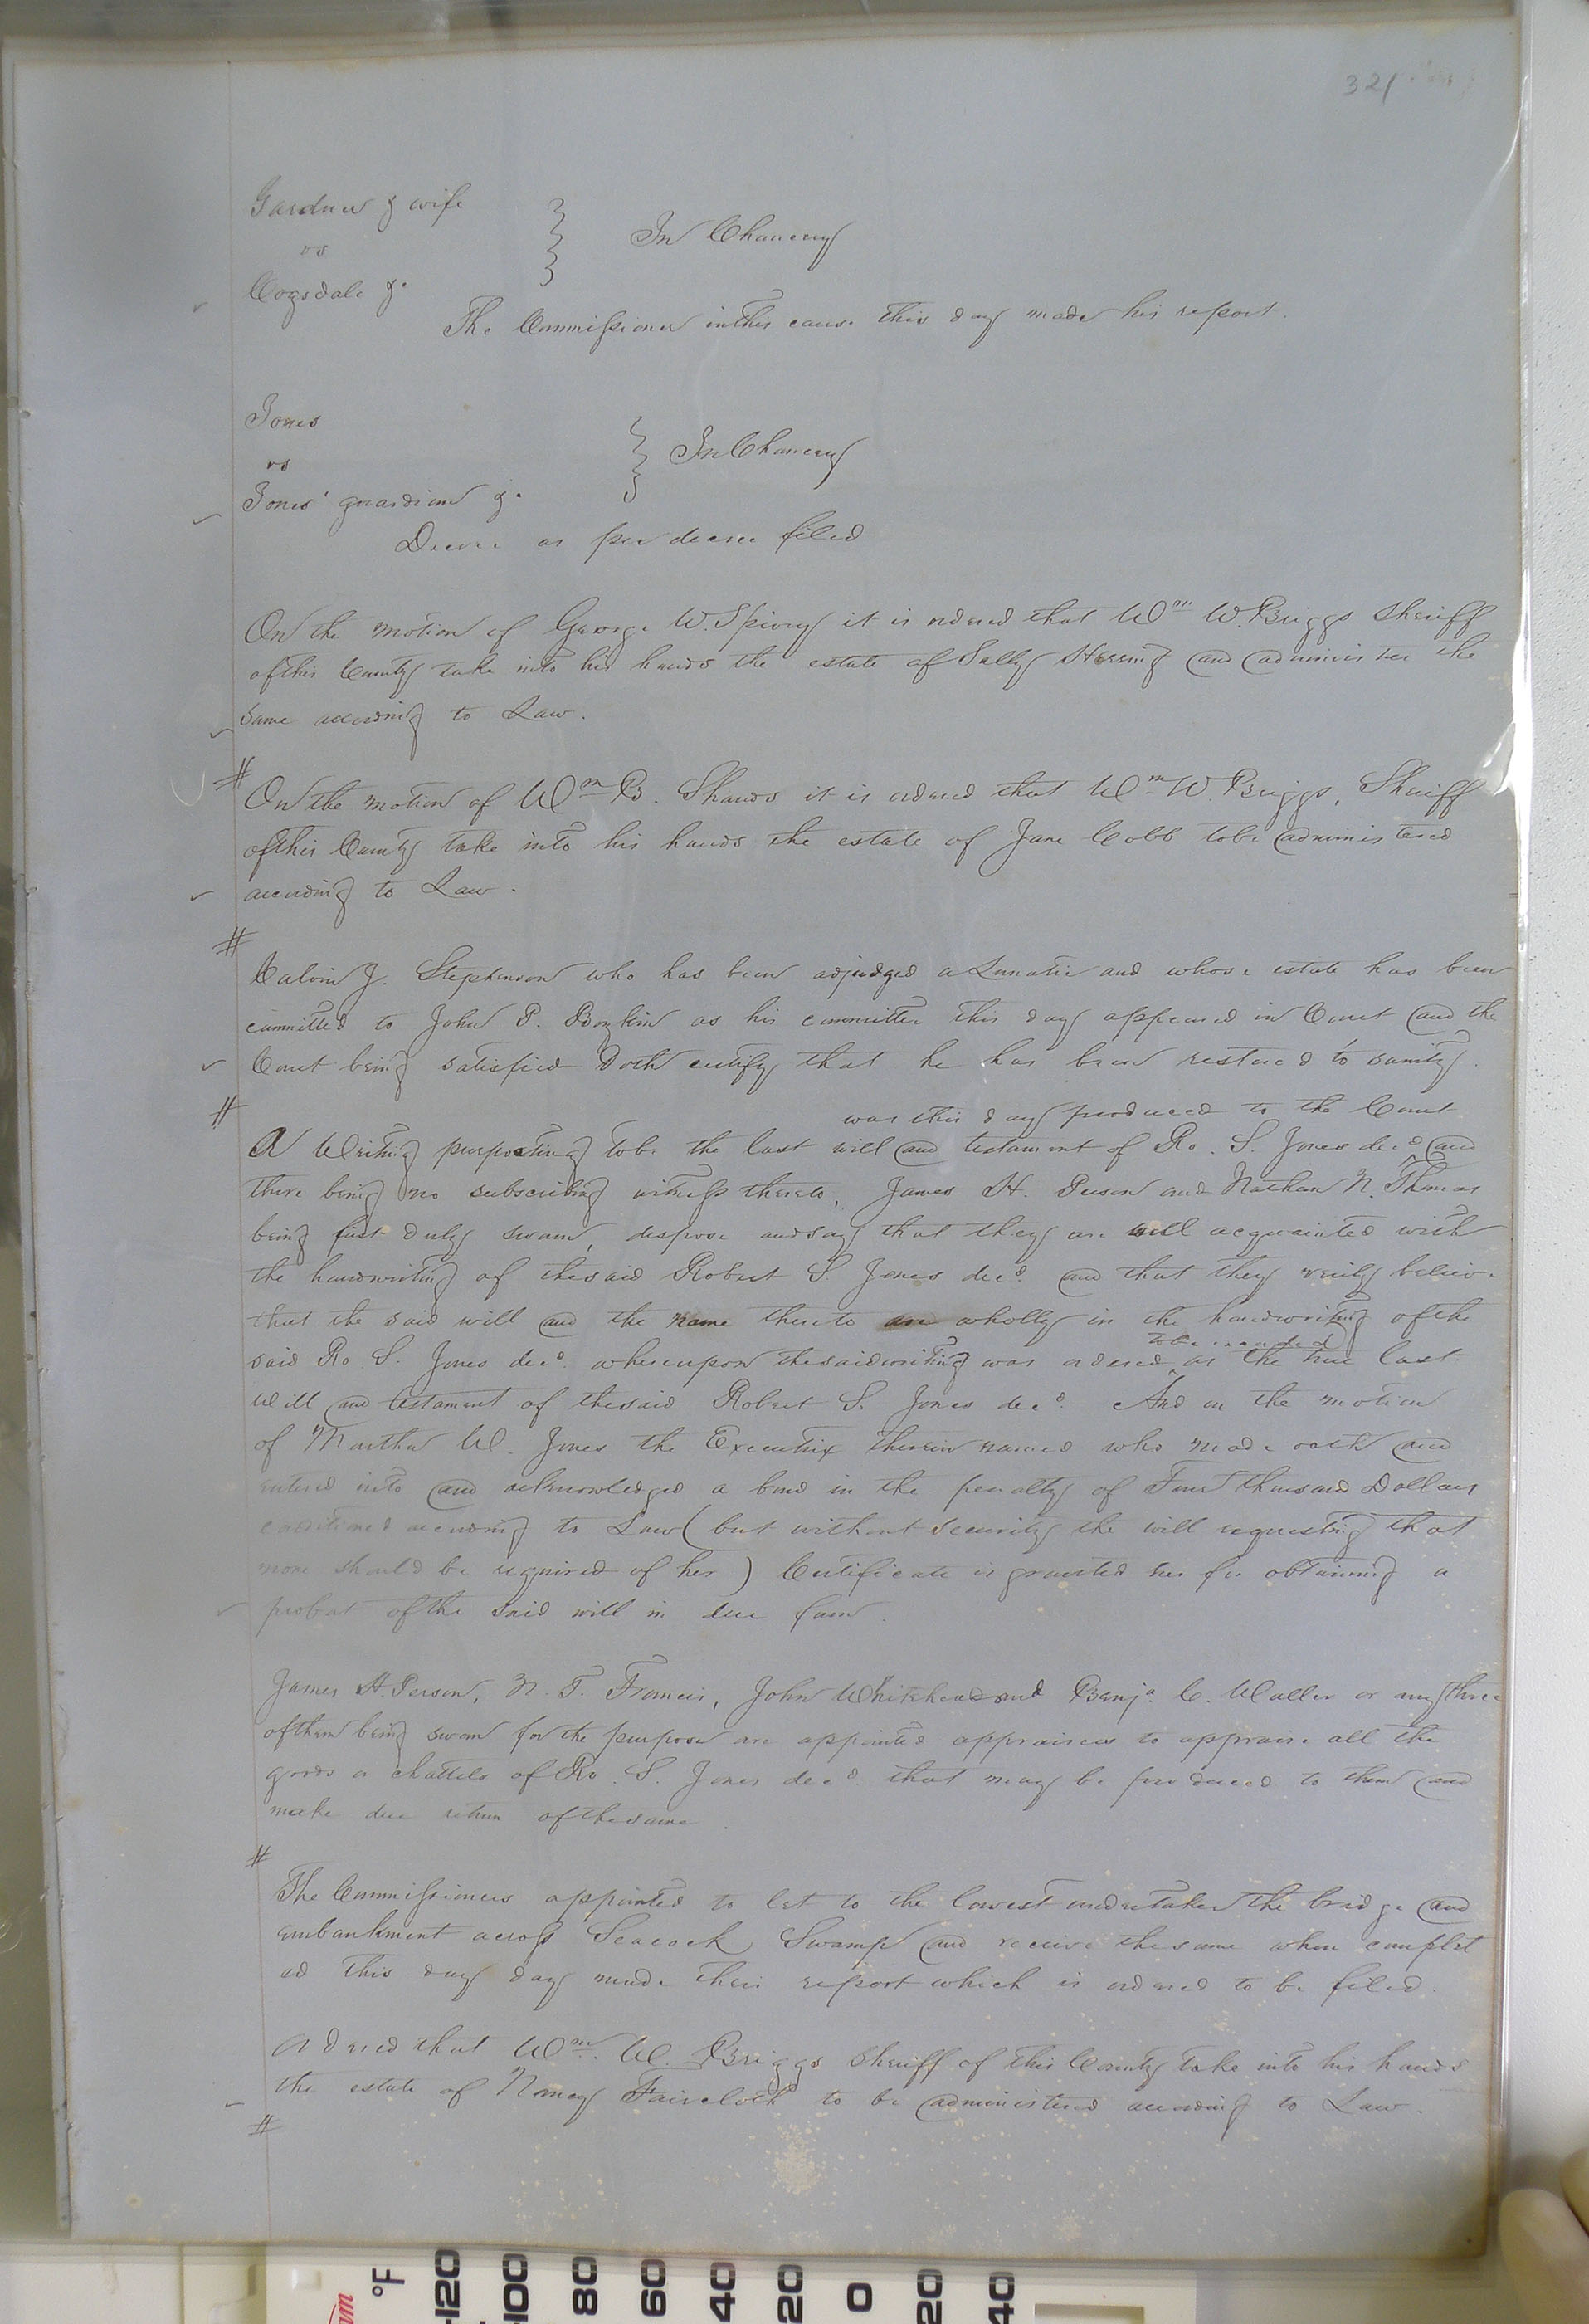 321
Gardner & wife
vs
Cogsdale &c
In Chancery
The Commissioner in this cause this day made his report.
Jones
vs
Jones' guardian &c
In Chancery
Decree as per decree filed
On the motion of George W. Spivey it is ordered that Wm W. Briggs Sheriff
of this County take into his hands the estate of Sally Herring and administer the
same according to Law.
# On the motion of Wm B. Shands it is ordered that Wm W. Briggs, Sheriff
of this County take into his hands the estate of Jane Cobb to be administered
according to Law.
#
Calvin J. Stephenson who has been adjudged a Lunatic and whose estate has been
committed to John P. Boykin as his committee this day appeared in Court and the
Court being satisfied Doth certify that he has been restored to sanity.
#
was this day produced to the Court
A Writing purporting to be the last will and testament of Ro. S. Jones decd and
there being no subscribing witness thereto, James H. Person and Nathan N. Thomas
being first duly sworn, despose and say that they are well acquainted with
the handwriting of the said Robert S. Jones decd. and that they verily believe
that the said will and the name thereto are wholly in the handwriting of the
to be recorded
said Ro. S. Jones decd. whereupon the said writing was ordered as the true last
will and testament of the said Robert S. Jones decd. And on the motion
of Martha W. Jones the Executrix therein named who made oath and
entered into and acknowledged a bond in the penalty of Four thousand Dollars
conditioned according to Law (but without security the will requesting that
none should be required of her) Certificate is granted her for obtaining a
probat of the said will in due form.
James H. Person, N. T. Francis, John Whitehead and Benja. C. Waller or any three
of them being sworn for the purpose are appointed appraisers to appraise all the
goods or chattels of Ro. S. Jones decd. that may be produced to them and
make due return of the same.
#
The Commissioners appointed to let to the lowest undertaker the bridge and
embankment across Seacock Swamp and receive the same when complet
ed this day day made their report which is ordered to be filed.
Ordered that Wm. W. Briggs Sheriff of this County take into his hands
the estate of Nancy Faircloth to be administered according to Law.
#
°F
120
100
80
60
40
20
0
20
40